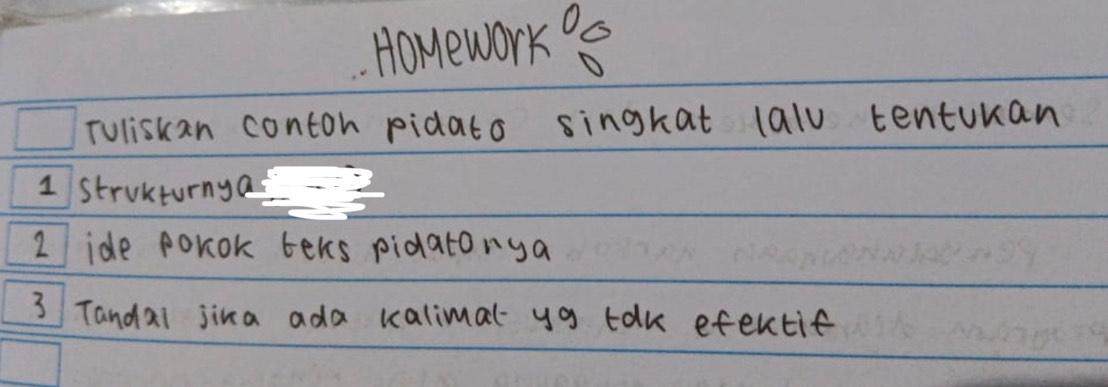 HOMEWORK
Tuliskan contoh pidato singkat lalu tentukan
1 Strukturnya
2 ide pokok teks pidatonya
3 Tandai jika ada kalimat yg tdk efektif